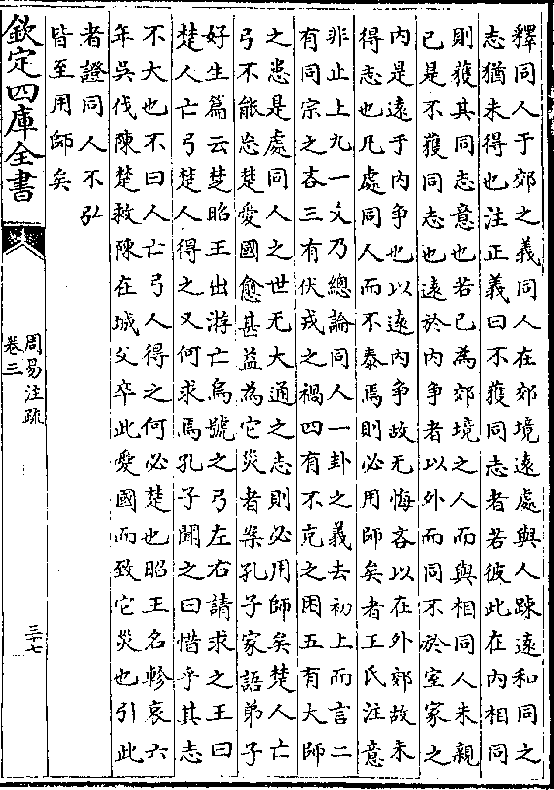 釋同人于郊之義同人在郊境遠處與人踈遠和同之
志猶未得也注正義曰不獲同志者若彼此在內相同
則獲其同志意也若已為郊境之人而與相同人未親
已是不獲同志也遠於内爭者以外而同不於室家之
内是遠于内爭也以遠内爭故无悔吝以在外郊故未
得志也凡處同人而不泰焉則必用師矣者王氏注意
非止上九一爻乃總論同人一卦之義去初上而言二
有同宗之吝三有伏戎之禍四有不克之困五有大師
之患是處同人之世无大通之志則必用師矣楚人亡
弓不能忘楚愛國愈甚益為它災者案孔子家語弟子
好生篇云楚昭王出游亡烏號之弓左右請求之王曰
楚人亡弓楚人得之又何求焉孔子聞之曰惜乎其志
不大也不曰人亡弓人得之何必楚也昭王名軫哀六
年吳伐陳楚救陳在城父卒此愛國而致它災也引此
者證同人不弘
皆至用師矣
欽定四庫全書
周易注疏
卷三
三十七